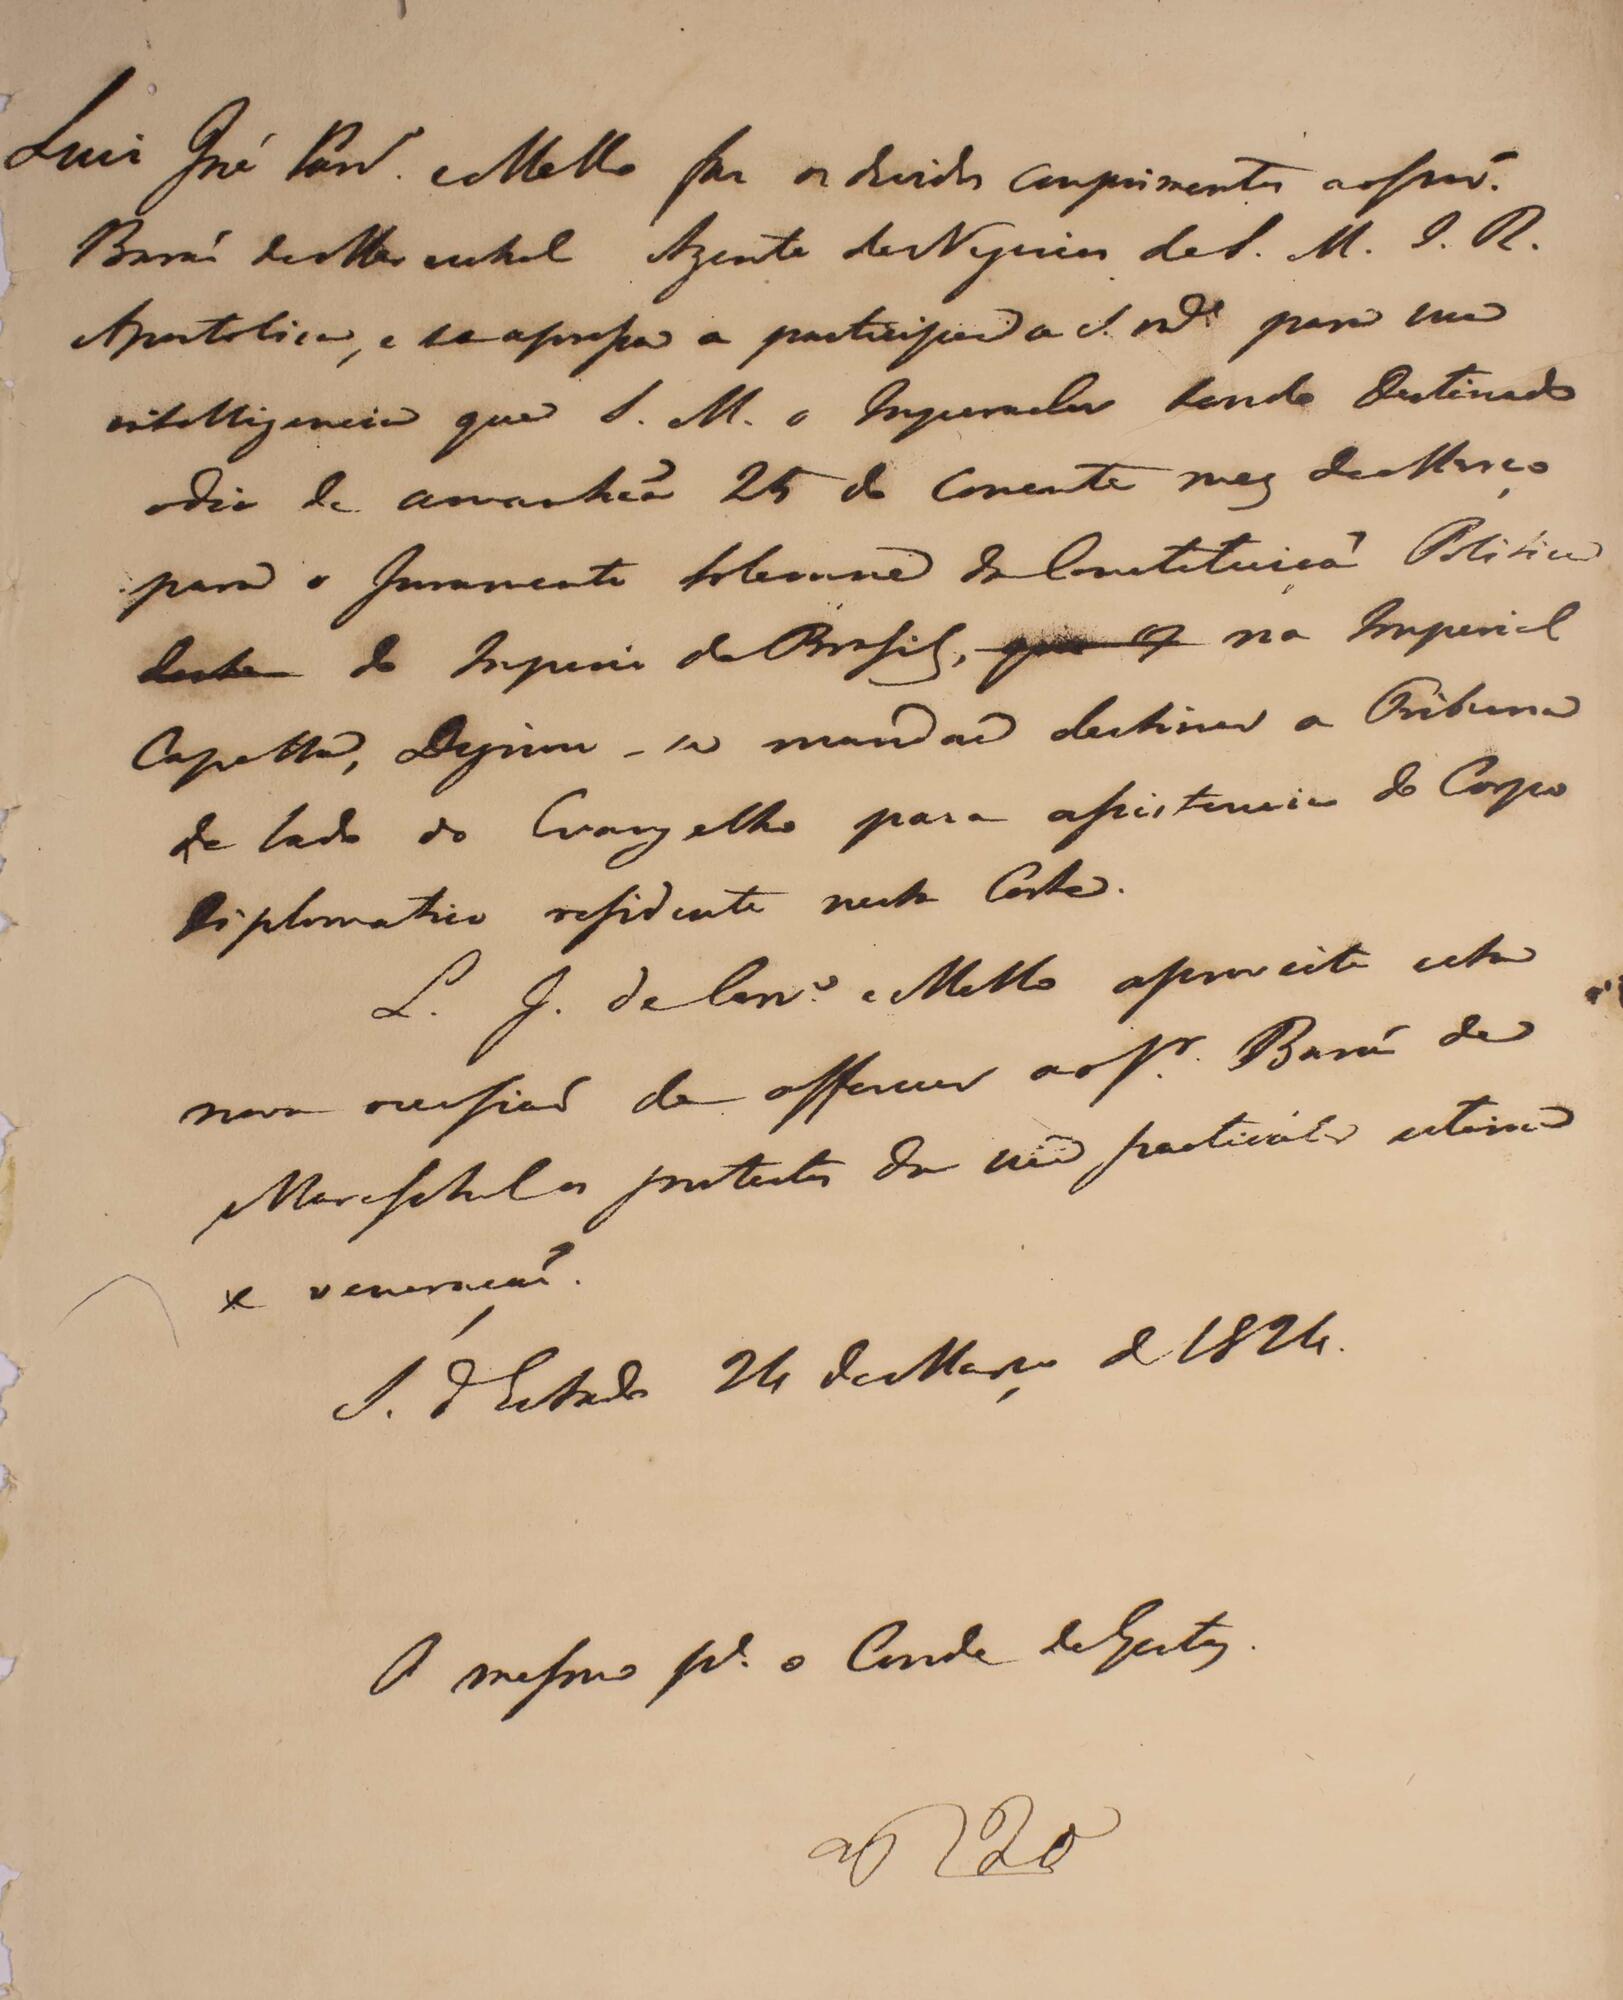 Luis José Carv.º e Mello faz os devidos comprimentos ao Snr.
Baraõ de Mareschal Agente de Negocios de S. M. I. R.
Apostolica, e se apressa a participar a S. para sua
intelligencia que S. M. o Imperador tendo Destinado
o dia de amanhãa 25 do corrente mez de Março
para o Juramento solemne da Constituiçaõ Politica
deste do Imperio do Brasil, que na Imperial
Capella, Dignou-se mandar destinar a Tribuna
do lado do Evangelho para assistencia do Corpo
Diplomatico residente nesta Corte.
L. J. de Carv.º e Mello aproveita esta
nova occasiaõ de offerecer ao Sr. Baraõ de
Mareschal os protestos da sua particular estima
e veneraçaõ.
S. d'Estado 24 de Março de 1824.
O mesmo pª. o Conde de Gestas.